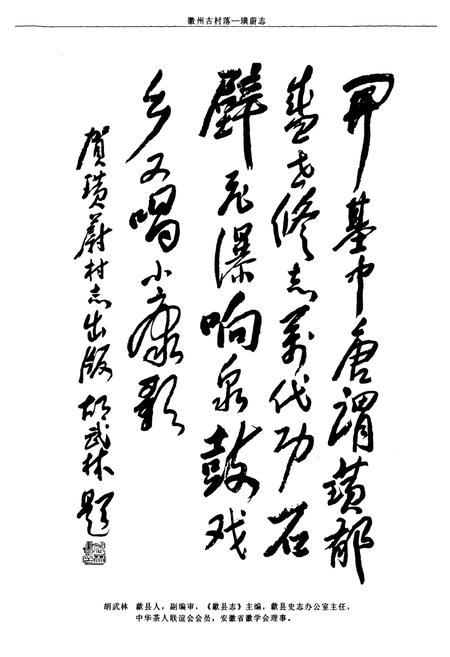 徽州古村落—璜蔚志
開基中唐謂璜郁
盛世修志萬代功石
壁飞瀑响泉鼓戏
乡又唱小康歌
賀璜蔚村志出版 胡武林 题
胡武林 歙县人，副编审，《歙县志》主编，歙县史志办公室主任，
中华茶人联谊会会员，安徽省徽学会理事。